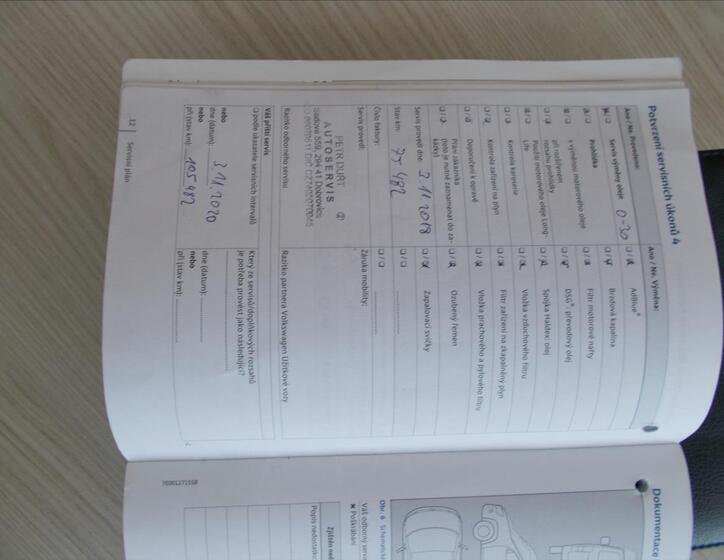 Potvrzení servisních úkonů 4
Ano / Ne. Provedeno:
Servis výměny oleje 0-30
Prohlídka
s výměnou motorového oleje
při rozšířeném
rozsahu prohlídky
Použito motorového oleje Long-
Life
Kontrola karoserie
Kontrola zařízení na plyn
Doporučení k opravě
Přání zákazníka
(toto je nutné zaznamenat do za-
kázky)
Servis proveď dne: 3 11. 2018
Stav km: 75 482
Číslo faktury:
Servis provedl:
PETR DURT
AUTOSERVIS
Sadová 559, 294 41 Dobrovice
Razítko odborného servisu
Váš příští servis
podle ukazatele servisních intervalů
nebo
dne (datum): 3 11. 2020
nebo
při (stav km): 105 482
Ano / Ne. Výměna:
AdBlue®
Brzdová kapalina
Filtr motorové nafty
DSG®, převodový olej
Spojka Haldex: olej
Vložka vzduchového filtru
Filtr zařízení na zkapalněný plyn
Vložka prachového a pylového filtru
Ozubený řemen
Zapalovací svíčky
Záruka mobility:
Razítko partnera Volkswagen Užitkové vozy
Který ze servisů/doplňkových rozsahů
je potřeba provést jako následující?
dne (datum):
nebo
při (stav km):
12 Servisní plán
Dokumentace
Obr. 6 Schematické
Váš odborný servis
✖ Poškrábání
Zjištěn
Popis nedostatku